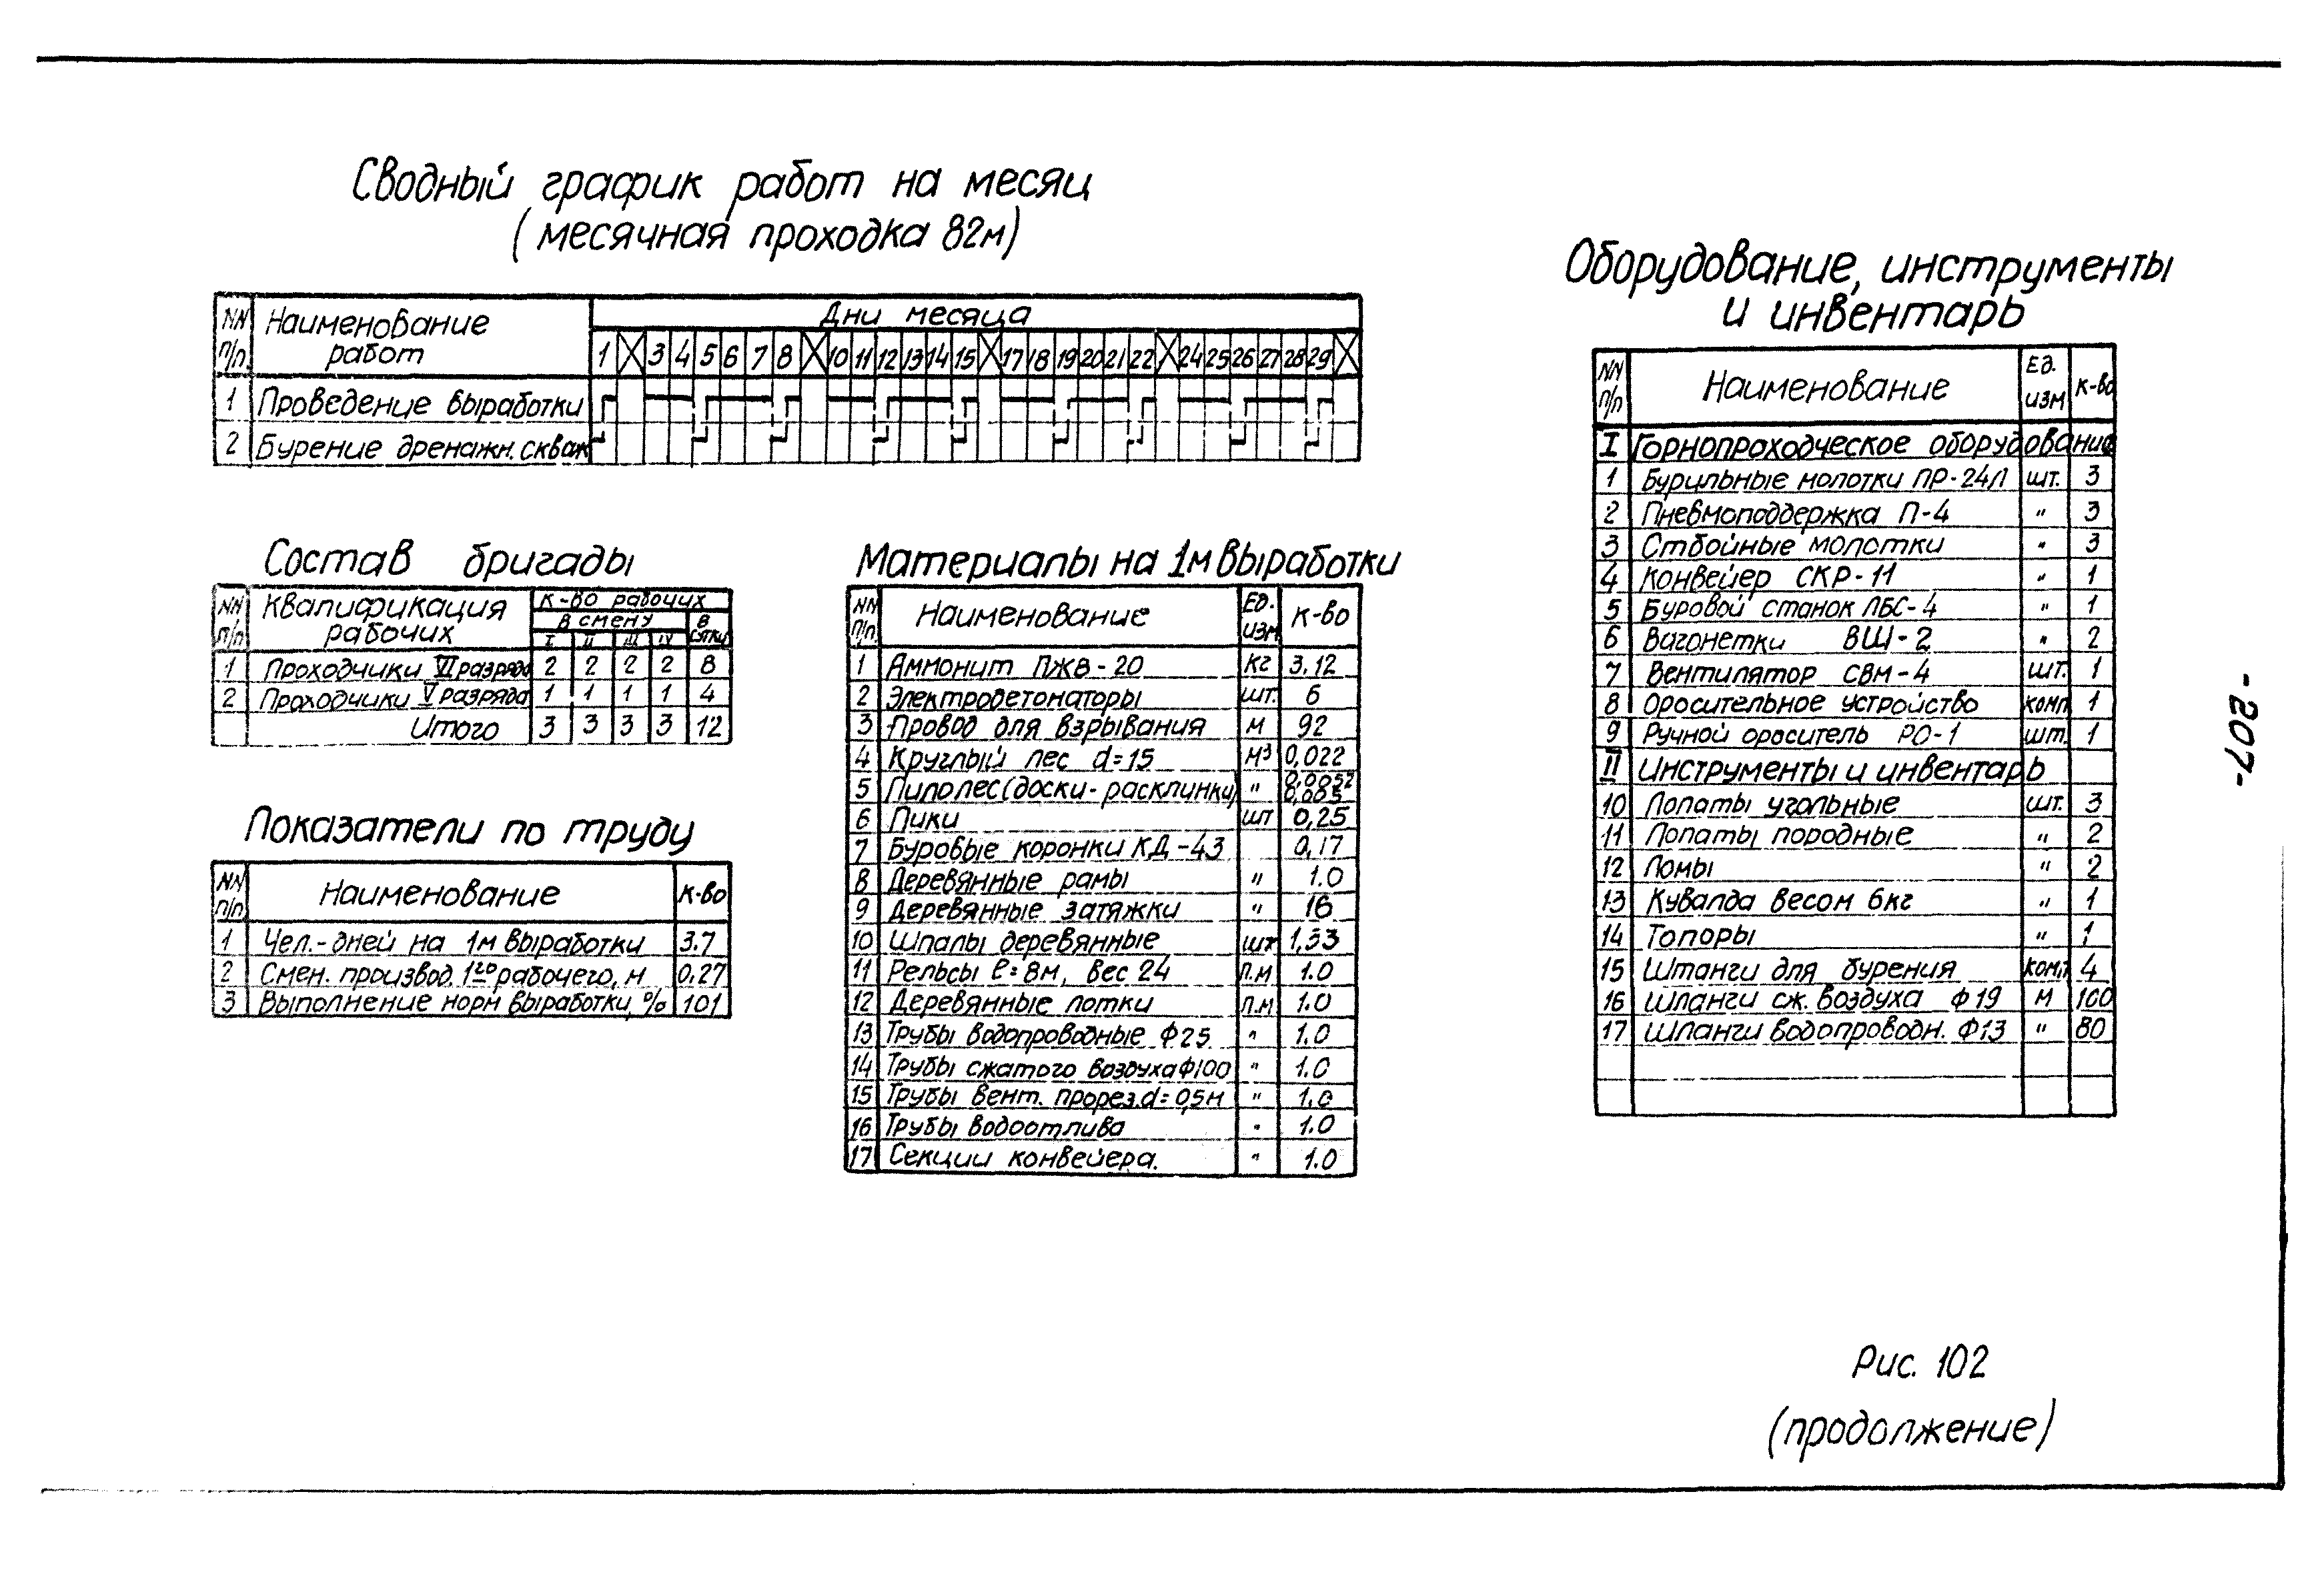 Сводный график работ на месяц
(месячная проходка 82м)
NN п/п Наименование работ Дни месяца
1 X 3 4 5 6 7 8 X 10 11 12 13 14 15 X 17 18 19 20 21 22 X 24 25 26 27 28 29 X
1 Проведение выработки
2 Бурение дренажн. скваж
Состав бригады
NN п/п Квалификация рабочих К-во рабочих
в смену в сутки
I II III IV
1 Проходчики VI разряда 2 2 2 2 8
2 Проходчики V разряда 1 1 1 1 4
Итого 3 3 3 3 12
Показатели по труду
NN п/п Наименование К-во
1 Чел.-дней на 1м выработки 3.7
2 Смен. производ. 1го рабочего, м 0.27
3 Выполнение норм выработки, % 101
Материалы на 1м выработки
NN п/п. Наименование Ед. изм К-во
1 Аммонит ПЖВ-20 кг 3.12
2 Электродетонаторы шт. 6
3 Провод для взрывания м 92
4 Круглый лес d=15 м³ 0,022
5 Пиполес (доски-расклинки) "
6 Пики шт 0,25
7 Буровые коронки КД-43 0,17
8 Деревянные рамы " 1.0
9 Деревянные затяжки " 16
10 Шпалы деревянные шт 1,33
11 Рельсы ℓ=8м, вес 24 п.м 1.0
12 Деревянные лотки п.м 1.0
13 Трубы водопроводные Ф25 " 1.0
14 Трубы сжатого воздуха Ф100 " 1.0
15 Трубы вент. прорез. d=0,5м " 1.0
16 Трубы водоотлива " 1.0
17 Секции конвейера. " 1.0
Оборудование, инструменты
и инвентарь
NN п/п Наименование Ед. изм К-во
I Горнопроходческое оборудование
1 Бурильные молотки ПР-24Л шт. 3
2 Пневмоподдержка П-4 " 3
3 Отбойные молотки " 3
4 Конвейер СКР-11 " 1
5 Буровой станок ЛБС-4 " 1
6 Вагонетки ВШ-2 " 2
7 Вентилятор СВМ-4 шт. 1
8 Оросительное устройство комп 1
9 Ручной ороситель РО-1 шт. 1
II Инструменты и инвентарь
10 Лопаты угольные шт. 3
11 Лопаты породные " 2
12 Ломы " 2
13 Кувалда весом 6кг " 1
14 Топоры " 1
15 Штанги для бурения комп 4
16 Шланги сж. воздуха Ф19 м 100
17 Шланги водопроводн. Ф13 " 80
-207-
Рис. 102
(продолжение)